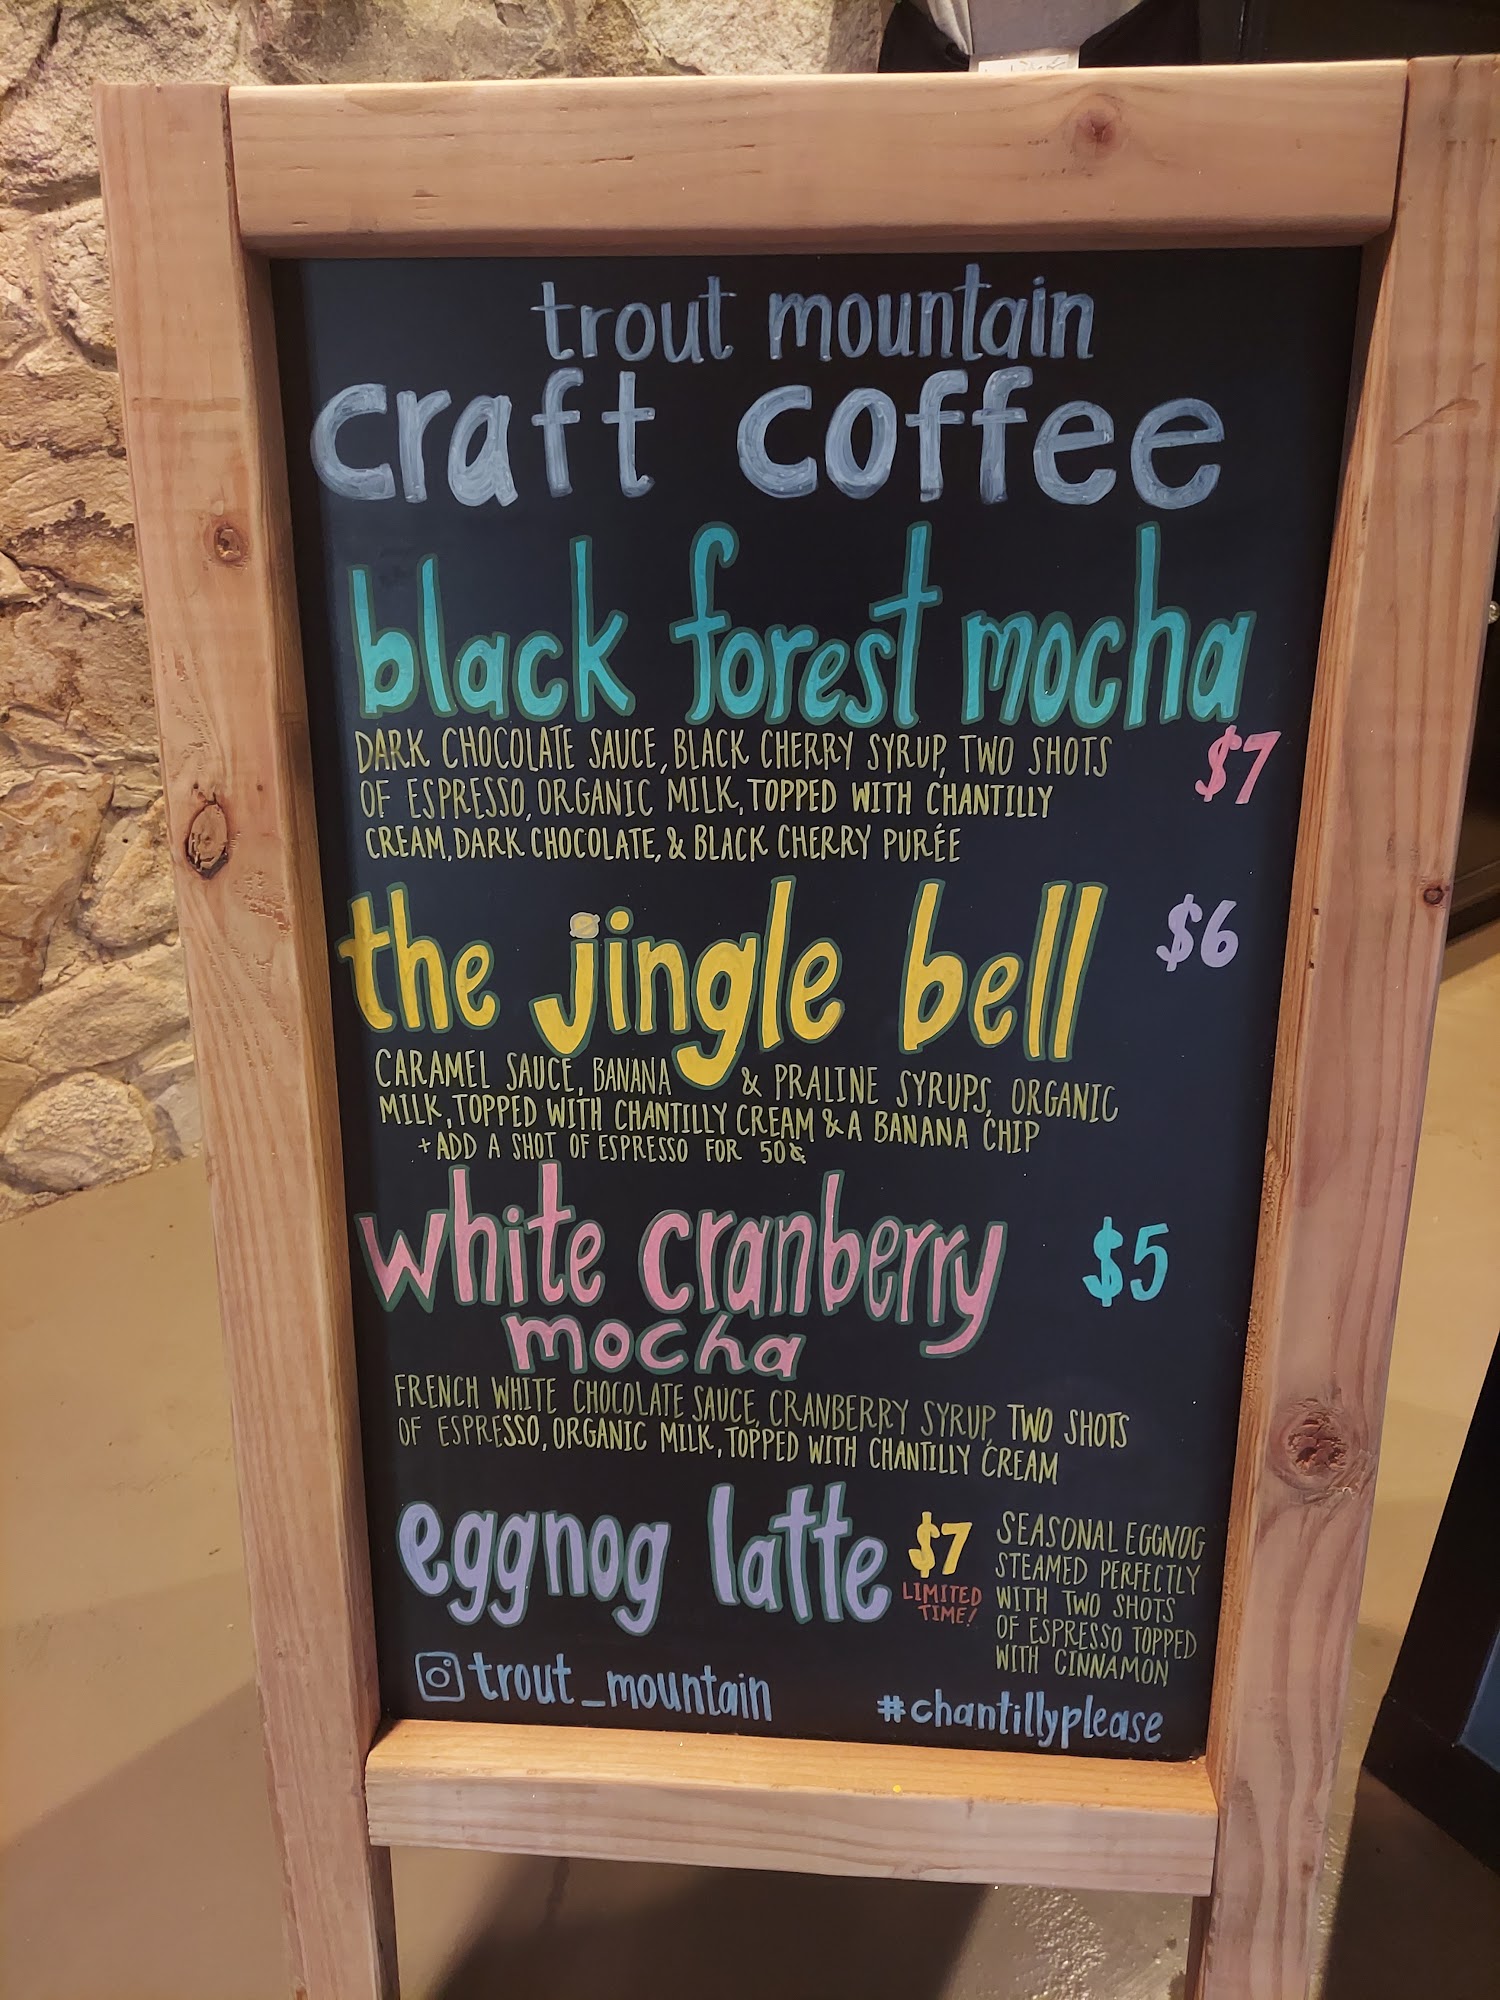 trout mountain
craft coffee
black forest mocha
DARK CHOCOLATE SAUCE, BLACK CHERRY SYRUP, TWO SHOTS
$7
OF ESPRESSO, ORGANIC MILK, TOPPED WITH CHANTILLY
CREAM, DARK CHOCOLATE, & BLACK CHERRY PURÉE
the jingle bell
$6
CARAMEL SAUCE, BANANA & PRALINE SYRUPS, ORGANIC
MILK, TOPPED WITH CHANTILLY CREAM & A BANANA CHIP
+ ADD A SHOT OF ESPRESSO FOR 50¢
white cranberry
$5
mocha
FRENCH WHITE CHOCOLATE SAUCE, CRANBERRY SYRUP, TWO SHOTS
OF ESPRESSO, ORGANIC MILK, TOPPED WITH CHANTILLY CREAM
eggnog latte
$7
LIMITED
TIME!
SEASONAL EGGNOG
STEAMED PERFECTLY
WITH TWO SHOTS
OF ESPRESSO TOPPED
WITH CINNAMON
trout_mountain
#chantillyplease